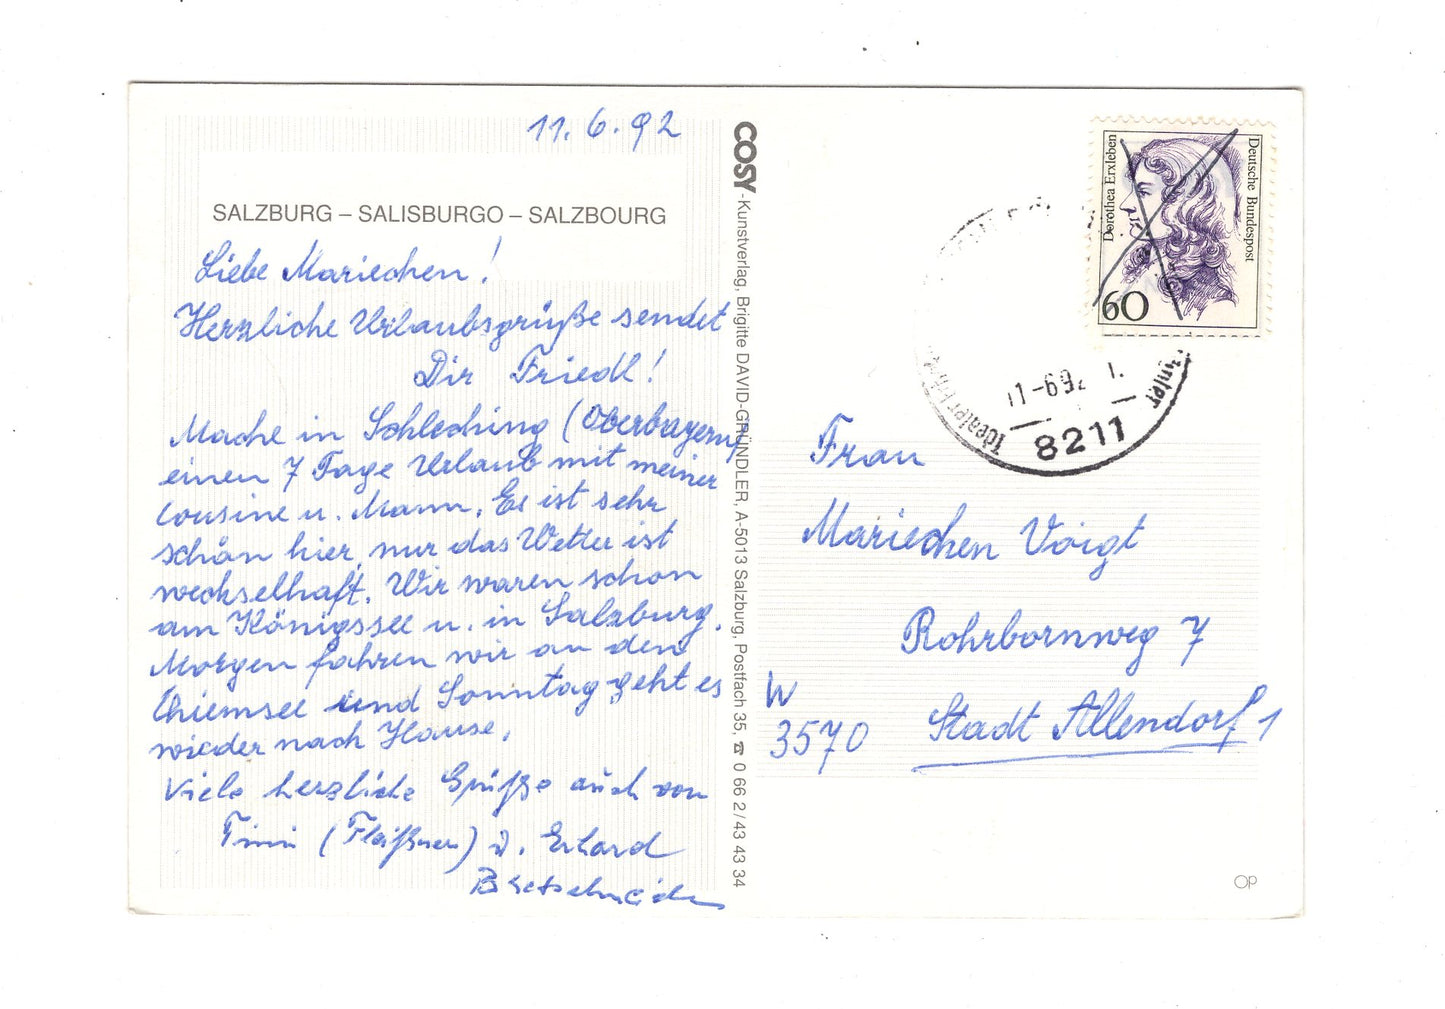 11.6.92
SALZBURG – SALISBURGO – SALZBOURG
Liebe Mariechen!
Herzliche Urlaubsgrüße sendet
Dir Friedl!
Mache in Schleching (Oberbayern)
einen 7 Tage Urlaub mit meiner
Cousine u. Mann. Es ist sehr
schön hier, nur das Wetter ist
wechselhaft. Wir waren schon
am Königssee u. in Salzburg.
Morgen fahren wir an den
Chiemsee und Sonntag geht es
wieder nach Hause.
Viele herzliche Grüße auch von
Tini (Fleißner) u. Erhard
Bretschneider
COSY-Kunstverlag, Brigitte DAVID-GRÜNDLER, A-5013 Salzburg, Postfach 35, ☎ 0 66 2/43 43 34
Dorothea Erxleben
Deutsche Bundespost
60
11-6.92
8211
Idealer
Frau
Mariechen Voigt
Rohrbornweg 7
W
3570 Stadt Allendorf 1
OP